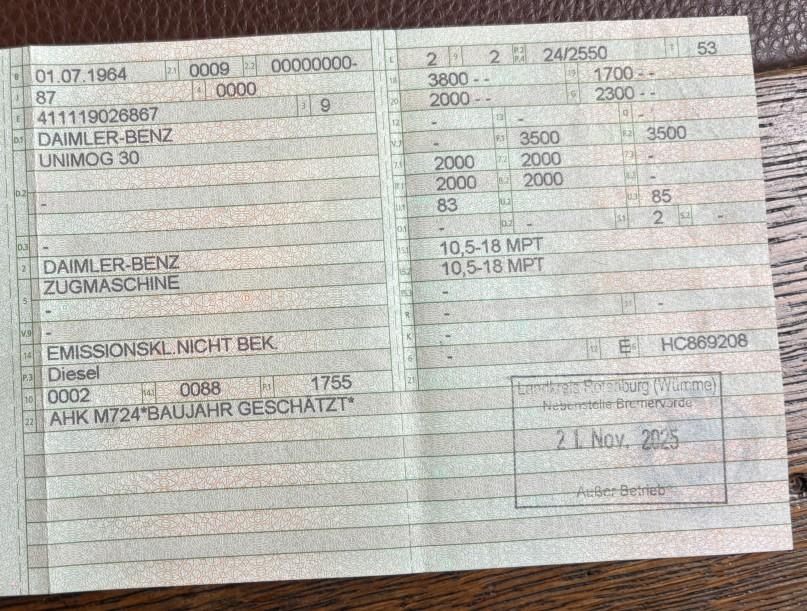 B 01.07.1964 2.1 0009 2.2 00000000-
J 87 4 0000
E 411119026867 3 9
D.1 DAIMLER-BENZ
UNIMOG 30
D.2 -
D.3 -
2 DAIMLER-BENZ
5 ZUGMASCHINE
-
V.9 -
14 EMISSIONSKL.NICHT BEK.
P.3 Diesel
10 0002 14.1 0088 P.1 1755
22 AHK M724*BAUJAHR GESCHÄTZT*
L 2 9 2 P.2 P.4 24/2550 T 53
18 3800-- 19 1700--
20 2000-- G 2300--
12 - 13 - Q -
V.7 - F.1 3500 F.2 3500
7.1 2000 7.2 2000 7.3 -
8.1 2000 8.2 2000 8.3 -
U.1 83 U.2 U.3 85
O.1 - O.2 - S.1 2 S.2 -
15.1 10,5-18 MPT
15.2 10,5-18 MPT
15.3 -
R - 11 -
K -
6 - 17 E 16 HC869208
21
Landkreis Rotenburg (Wümme)
Nebenstelle Bremervörde
21. Nov. 2025
Außer Betrieb